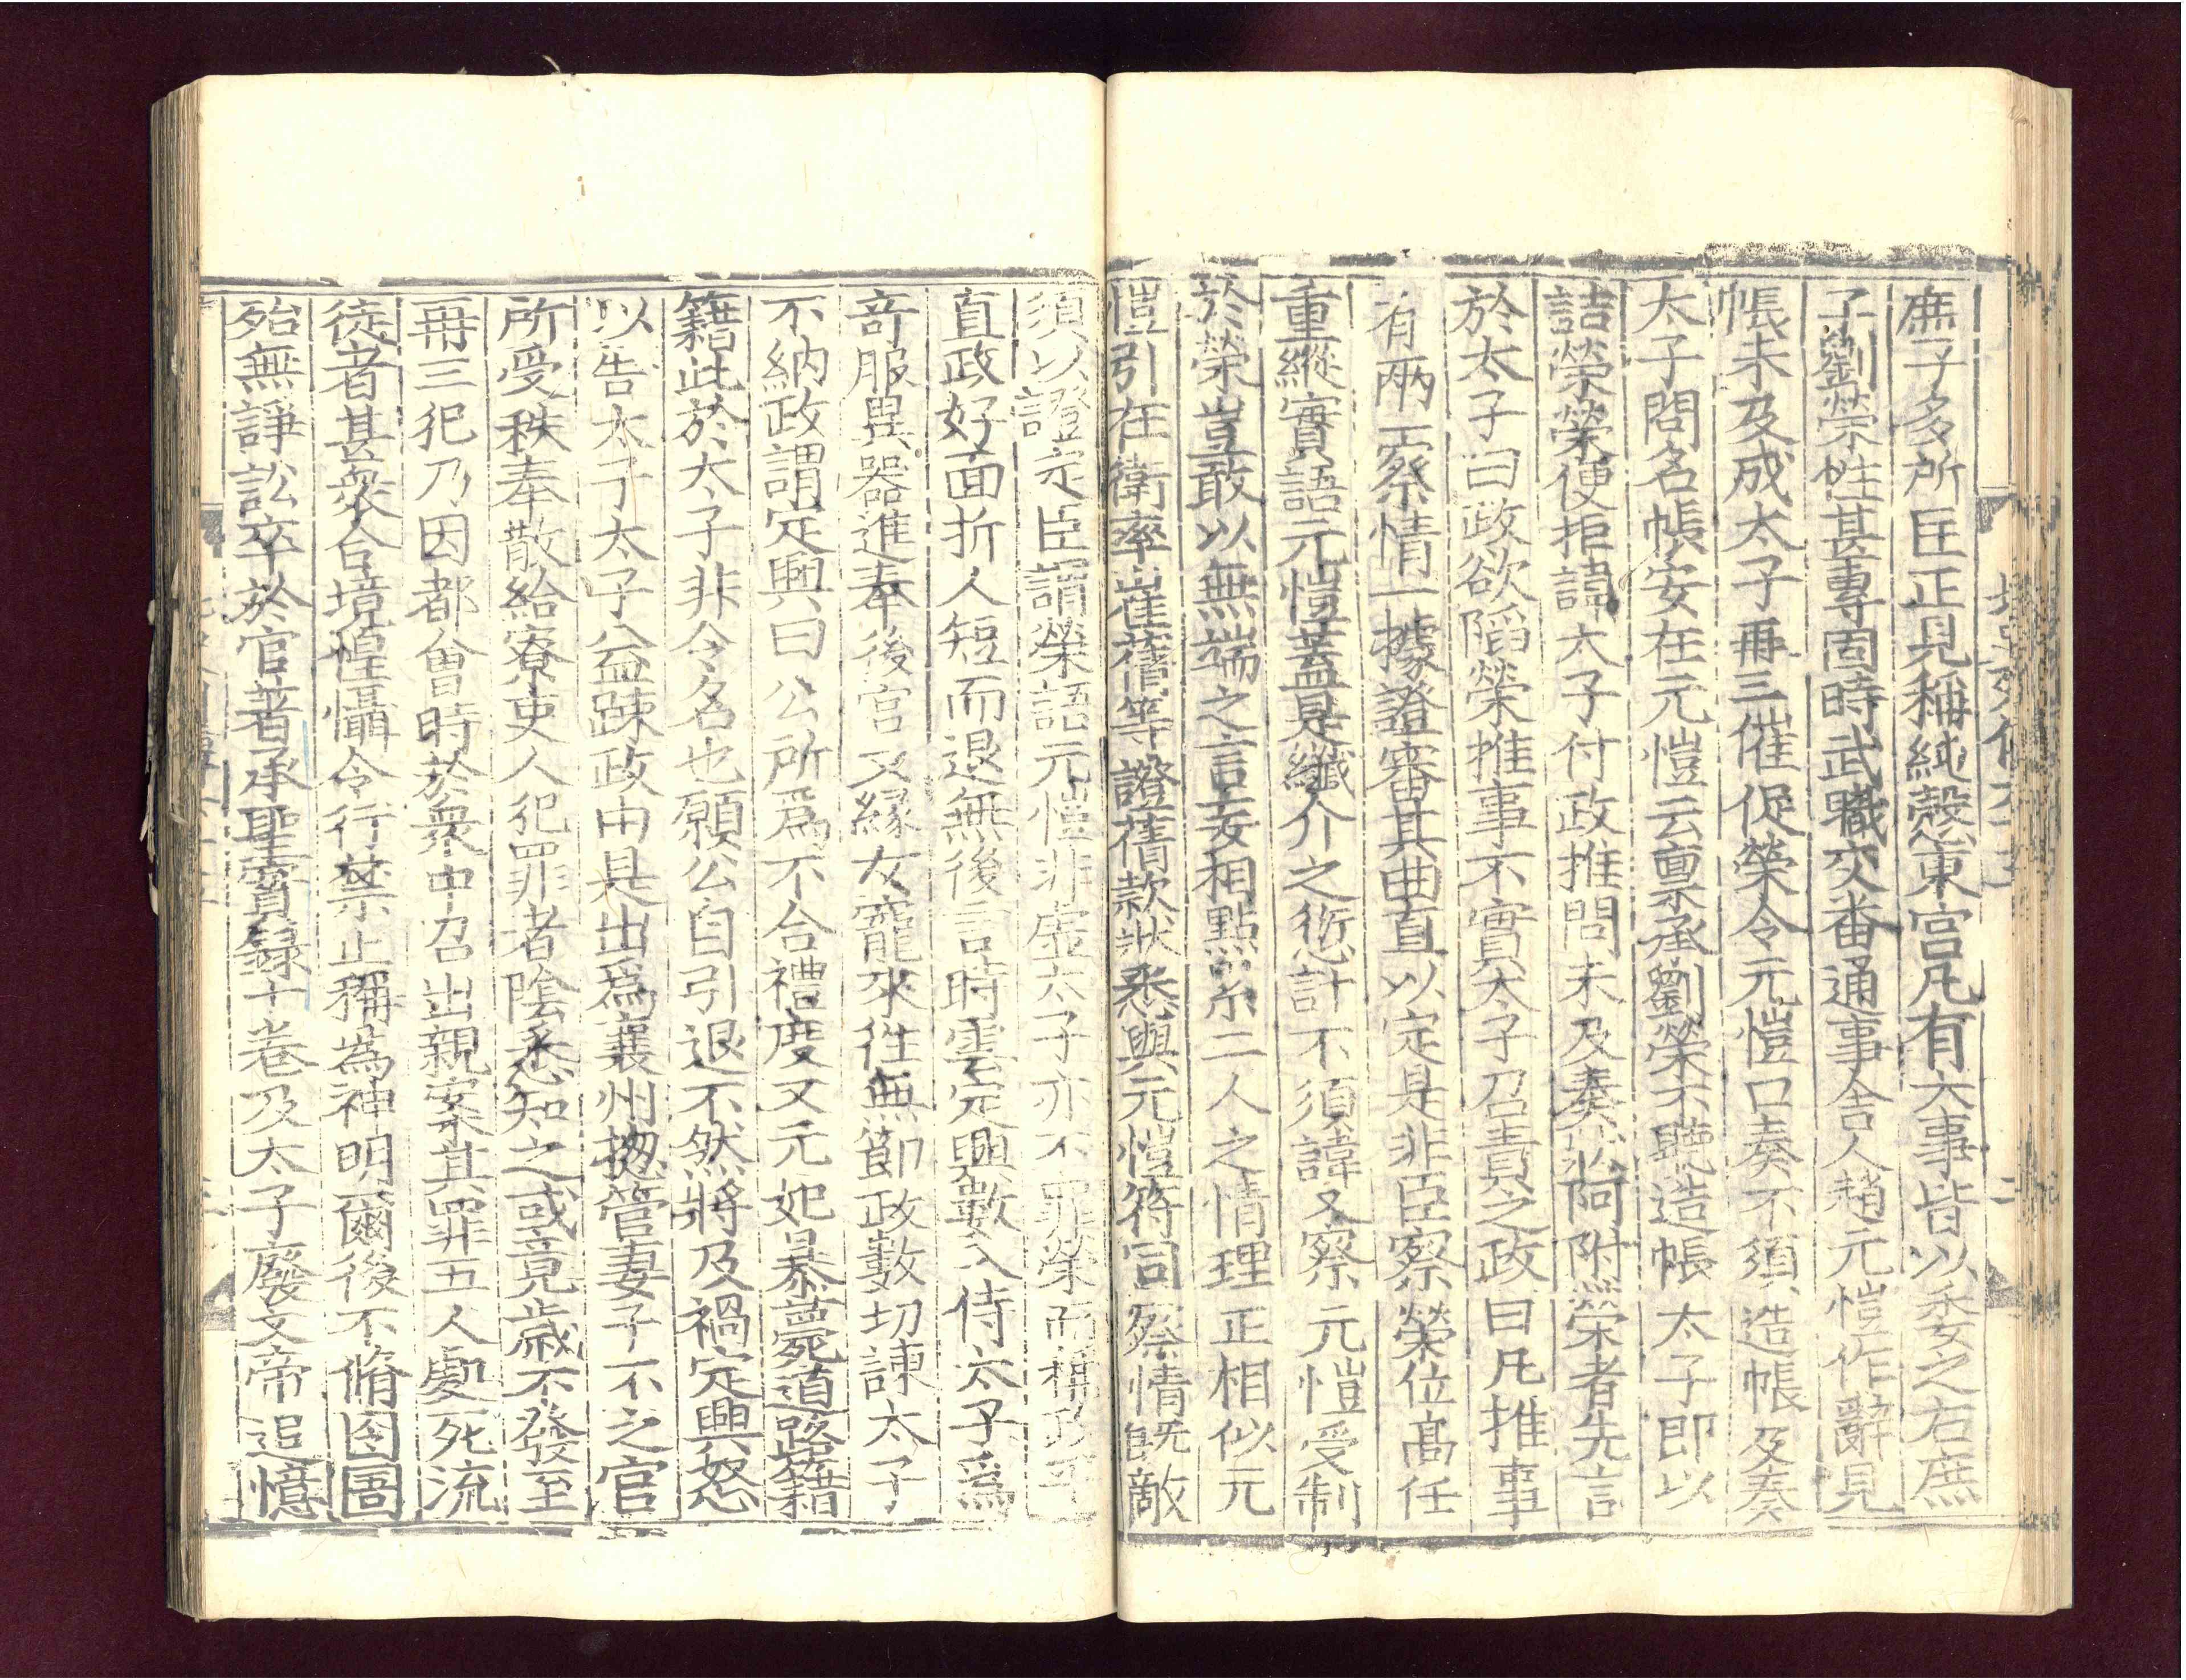 庶子多所匡正見稱純慤東宮凡有大事皆以委之右庶
子劉榮性甚專固時武職交番通事舍人趙元愷作辭見
帳未及成太子再三催促榮令元愷口奏不須造帳及奏
太子問名帳安在元愷云禀承劉榮不聽造帳太子即以
詰榮榮便拒諱太子付政推問未及奏狀阿附榮者先言
於太子曰政欲陷榮推事不實太子召責之政曰凡推事
有兩一察情一據證審其曲直以定是非臣察榮位高任
重縱實語元愷蓋是纖介之愆計不須諱又察元愷受制
於榮豈敢以無端之言妄相點累二人之情理正相似元
愷引在衛率崔蒨等證蒨款狀悉與元愷符同察情既敵
須以證定臣謂榮語元愷非虛太子亦不罪榮而稱政平
直政好面折人短而退無後言時雲定興數入侍太子爲
竒服異器進奉後宮又緣女寵來徃無節政數切諫太子
不納政謂定興曰公所爲不合禮度又元妃暴薨道路籍
籍此於太子非令名也願公自引退不然將及禍定興怒
以告太子太子益踈政由是出爲襄州揔管妻子不之官
所受秩奉散給寮吏人犯罪者陰悉知之或竟歲不發至
再三犯乃因都會時於衆中召出親案其罪五人處死流
徒者甚衆合境惶懾令行禁止稱為神明爾後不脩囹圄
殆無諍訟卒於官著承聖實錄十卷及太子廢文帝追憶